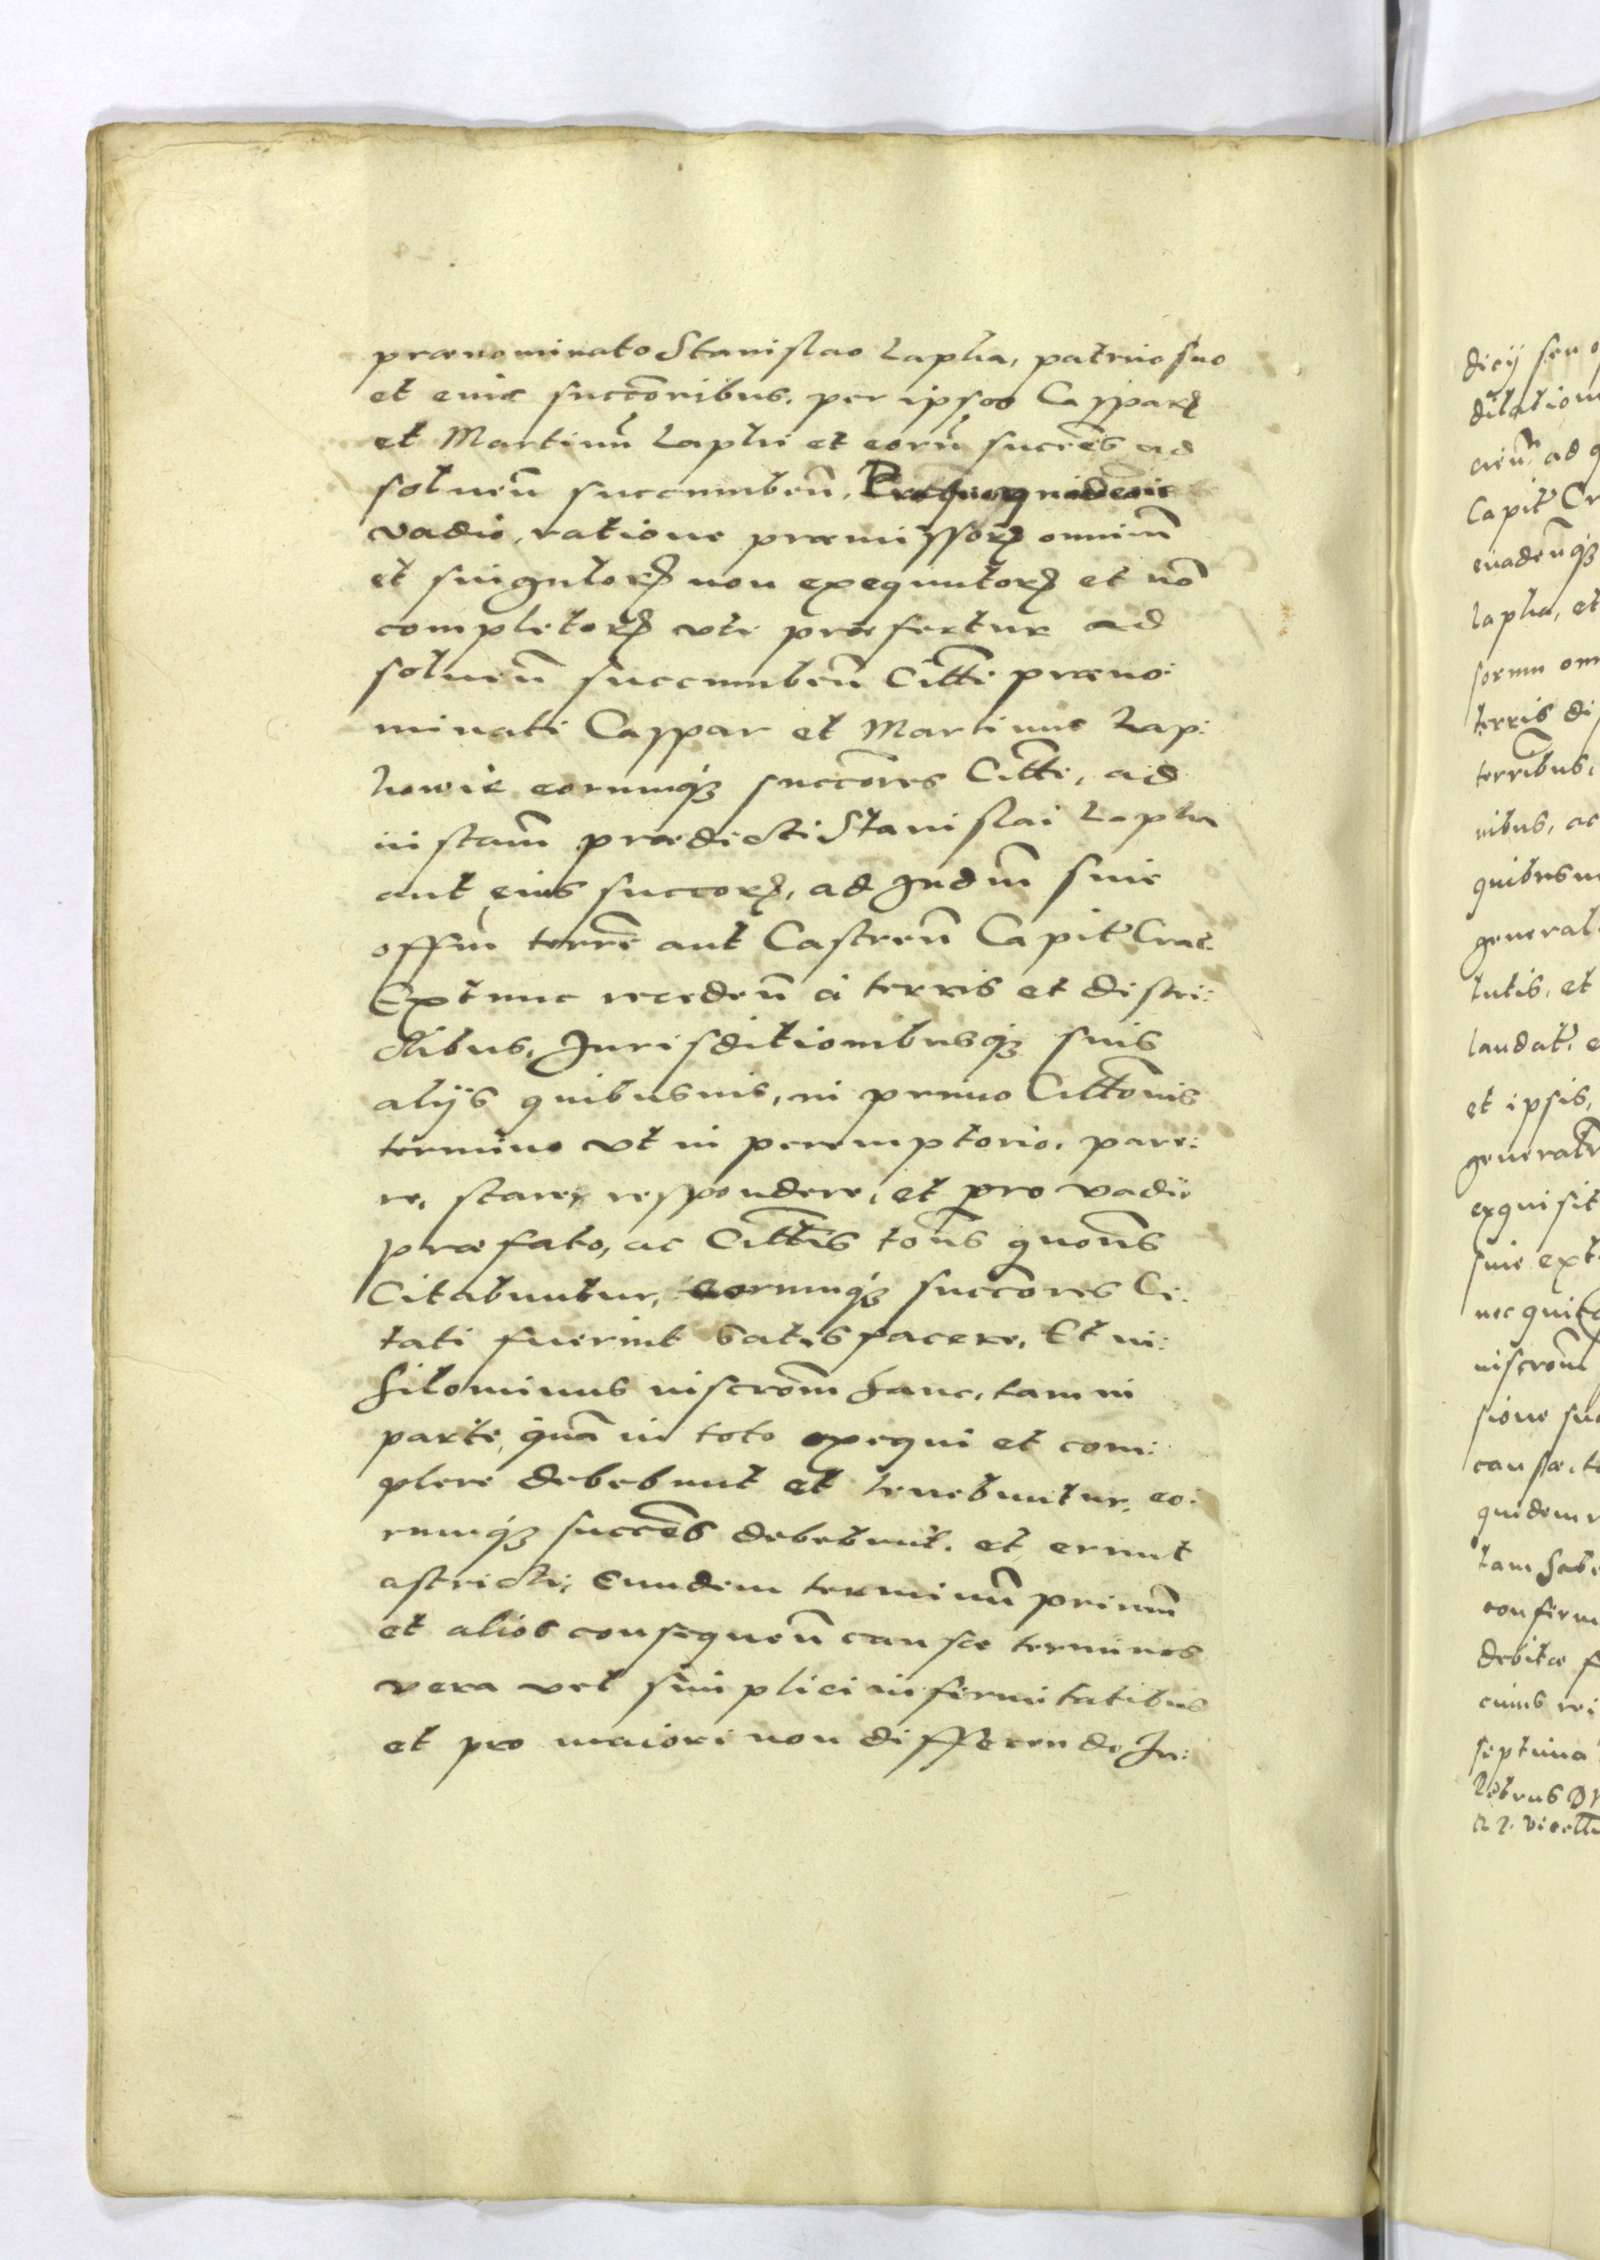 prænominato Stanislao Lapka, patruo suo
et eius succõribus, per ipsos Casparꝝ
et Martinũ Lapki et eorũ succẽs ad
soluen̄ succumben̄,
vadio, ratione præmissorꝝ omniũ
et singulorꝝ non exequutorꝝ et nõ
completorꝝ vti præfertur ad
soluen̄ succumben̄ Citti præno:
minati Caspar et Martinus Lap:
kowie eorumqꝫ succõres Citti, ad
instam̃ prædicti Stanislai Lapka
aut eius succorꝝ, ad Judm̃ siue
offm̃ terrẽ aut Castren̄ Capitl Crac.
Extunc receden̄ à terris et distri:
ctibus, Jurisditionibusqꝫ suis
alijs quibusuis, in primo Cittõnis
termino vt in peremptorio, pare:
re, stare, respondere, et pro vadio
præfato, ac Cittis toñs quoñs
Citabuntur, eorumqꝫ succores Ci:
tati fuerint satisfacere, Et ni:
hilominus inscrom̃ hanc, tam in
parte, quã in toto exequi et com:
plere debebunt et tenebuntur, eo:
rumqꝫ succẽs debebunt, et erunt
astricti, Eundem terminũ primũ
et alios consequen̄ causæ terminos
vera vel simplici infirmitatibus
et pro maiori non differendo Ju:
dicij seu
ditation
ad
Capitl Cr
euaden̄qꝫ
Lapka, et
sorum om
terris di
terribus,
nibus, ac
quibusui
general
tutis, et
laudat, e
et ipsis,
generatr
exquisit
siue ext
nec quit
inscrom̃
sione su
causæ, te
quidem
tam habe
confirm
debitæ f
cuius rei
septima